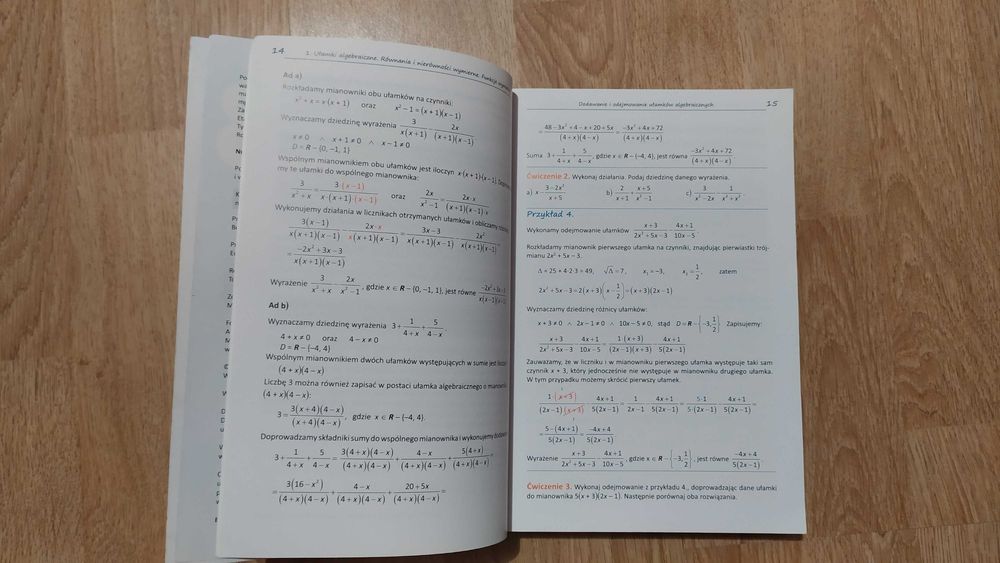 14
1. Ułamki algebraiczne. Równania i nierówności wymierne. Funkcje
Ad a)
Rozkładamy mianowniki obu ułamków na czynniki:
x² + x = x(x + 1) oraz x² − 1 = (x + 1)(x − 1)
Wyznaczamy dziedzinę wyrażenia 3/(x(x+1)) − 2x/((x+1)(x−1))
x ≠ 0 ∧ x + 1 ≠ 0 ∧ x − 1 ≠ 0
D = R − {0, −1, 1}
Wspólnym mianownikiem obu ułamków jest iloczyn x(x + 1)(x − 1).
my te ułamki do wspólnego mianownika:
3/(x² + x) = 3·(x − 1)/(x·(x + 1)(x − 1)) oraz 2x/(x² − 1) = 2x·x/((x + 1)(x − 1)·x)
Wykonujemy działania w licznikach otrzymanych ułamków i obliczamy
3(x − 1)/(x(x + 1)(x − 1)) − 2x·x/(x(x + 1)(x − 1)) = (3x − 3)/(x(x + 1)(x − 1)) − 2x²/(x(x + 1)(x − 1)) =
= (−2x² + 3x − 3)/(x(x + 1)(x − 1))
Wyrażenie 3/(x² + x) − 2x/(x² − 1), gdzie x ∈ R − {0, −1, 1}, jest równe
Ad b)
Wyznaczamy dziedzinę wyrażenia 3 + 1/(4 + x) + 5/(4 − x)
4 + x ≠ 0 oraz 4 − x ≠ 0
D = R − {−4, 4}
Wspólnym mianownikiem dwóch ułamków występujących w sumie jest
(4 + x)(4 − x)
Liczbę 3 można również zapisać w postaci ułamka algebraicznego o
(4 + x)(4 − x):
3 = 3(x + 4)(4 − x)/((x + 4)(4 − x)), gdzie x ∈ R − {−4, 4}.
Doprowadzamy składniki sumy do wspólnego mianownika i wykonujemy
3 + 1/(4 + x) + 5/(4 − x) = 3(4 + x)(4 − x)/((4 + x)(4 − x)) + (4 − x)/((4 + x)(4 − x)) + 5(4 + x)/((4 + x)(4 − x)) =
= 3(16 − x²)/((4 + x)(4 − x)) + (4 − x)/((4 + x)(4 − x)) + (20 + 5x)/((4 + x)(4 − x)) =
Dodawanie i odejmowanie ułamków algebraicznych
15
= (48 − 3x² + 4 − x + 20 + 5x)/((4 + x)(4 − x)) = (−3x² + 4x + 72)/((4 + x)(4 − x))
Suma 3 + 1/(4 + x) + 5/(4 − x), gdzie x ∈ R − {−4, 4}, jest równa (−3x² + 4x + 72)/((4 + x)(4 − x))
Ćwiczenie 2. Wykonaj działania. Podaj dziedzinę danego wyrażenia.
a) x − (3 − 2x²)/(x + 5) b) 2/(x + 1) + (x + 5)/(x² − 1) c) 3/(x² − 2x) − 1/(x² + x³)
Przykład 4.
Wykonamy odejmowanie ułamków (x + 3)/(2x² + 5x − 3) − (4x + 1)/(10x − 5).
Rozkładamy mianownik pierwszego ułamka na czynniki, znajdując pierwiastki trój-
mianu 2x² + 5x − 3.
Δ = 25 + 4·2·3 = 49, √Δ = 7, x₁ = −3, x₂ = 1/2, zatem
2x² + 5x − 3 = 2(x + 3)(x − 1/2) = (x + 3)(2x − 1)
Wyznaczamy dziedzinę różnicy ułamków:
x + 3 ≠ 0 ∧ 2x − 1 ≠ 0 ∧ 10x − 5 ≠ 0, stąd D = R − {−3, 1/2}. Zapisujemy:
(x + 3)/(2x² + 5x − 3) − (4x + 1)/(10x − 5) = 1·(x + 3)/((2x − 1)(x + 3)) − (4x + 1)/(5(2x − 1))
Zauważamy, że w liczniku i w mianowniku pierwszego ułamka występuje taki sam
czynnik x + 3, który jednocześnie nie występuje w mianowniku drugiego ułamka.
W tym przypadku możemy skrócić pierwszy ułamek.
1·(x + 3)/((2x − 1)(x + 3)) − (4x + 1)/(5(2x − 1)) = 1/(2x − 1) − (4x + 1)/(5(2x − 1)) = 5·1/(5·(2x − 1)) − (4x + 1)/(5(2x − 1)) =
= (5 − (4x + 1))/(5(2x − 1)) = (−4x + 4)/(5(2x − 1))
Wyrażenie (x + 3)/(2x² + 5x − 3) − (4x + 1)/(10x − 5), gdzie x ∈ R − {−3, 1/2}, jest równe (−4x + 4)/(5(2x − 1)).
Ćwiczenie 3. Wykonaj odejmowanie z przykładu 4., doprowadzając dane ułamki
do mianownika 5(x + 3)(2x − 1). Następnie porównaj oba rozwiązania.